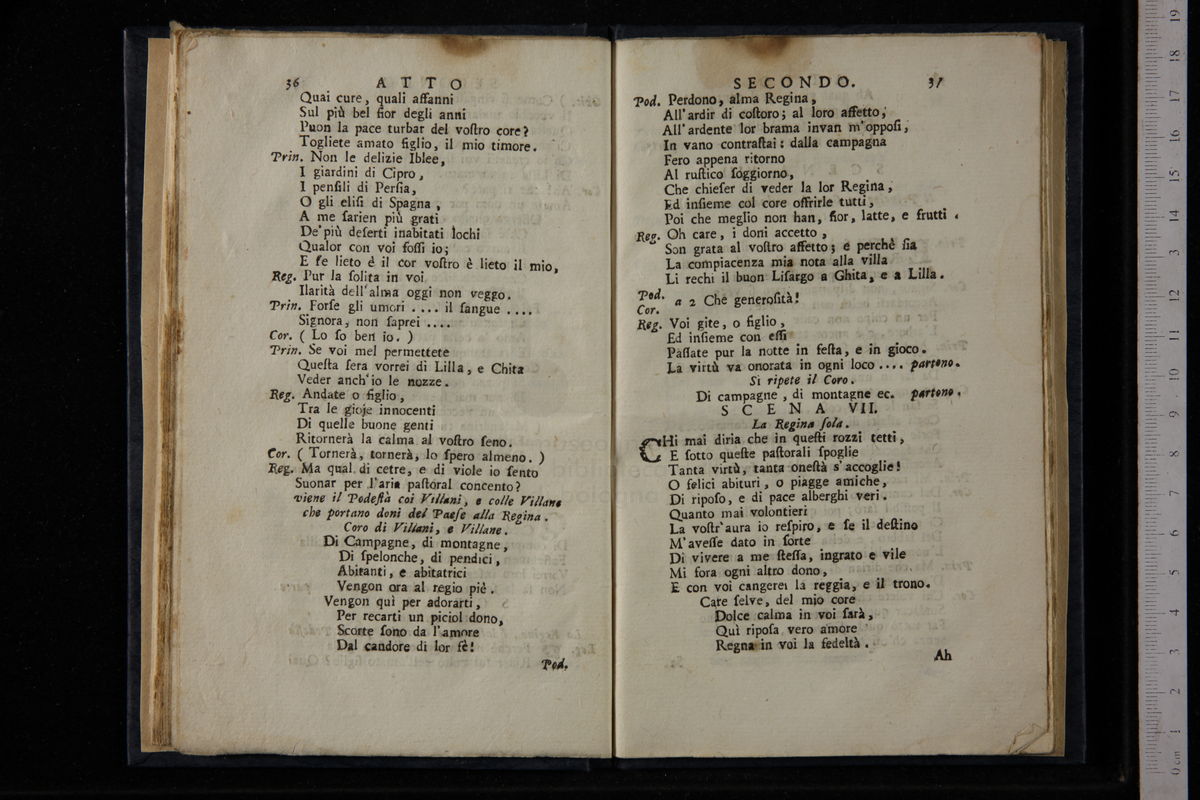 36 ATTO
Quai cure, quali affanni
Sul più bel fior degli anni
Puon la pace turbar del voſtro core?
Togliete amato figlio, il mio timore.
Prin. Non le delizie Iblee,
I giardini di Cipro,
I penſili di Perſia,
O gli eliſi di Spagna,
A me ſarien più grati
De'più deſerti inabitati lochi
Qualor con voi foſſi io;
E ſe lieto è il cor voſtro è lieto il mio,
Reg. Pur la ſolita in voi
Ilarità dell'alma oggi non veggo.
Prin. Forſe gli umori .... il ſangue ....
Signora, non ſaprei ....
Cor. ( Lo ſo ben io. )
Prin. Se voi mel permettete
Queſta ſera vorrei di Lilla, e Chita
Veder anch'io le nozze.
Reg. Andate o figlio,
Tra le gioje innocenti
Di quelle buone genti
Ritornerà la calma al voſtro ſeno.
Cor. ( Tornerà, tornerà, lo ſpero almeno. )
Reg. Ma qual di cetre, e di viole io ſento
Suonar per l'aria paſtoral concento?
viene il Podeſtà coi Villani, e colle Villane
che portano doni del Paeſe alla Regina.
Coro di Villani, e Villane.
Di Campagne, di montagne,
Di ſpelonche, di pendici,
Abitanti, e abitatrici
Vengon ora al regio piè.
Vengon quì per adorarti,
Per recarti un piciol dono,
Scorte ſono da l'amore
Dal candore di lor fè!
Pod.
SECONDO. 37
Pod. Perdono, alma Regina,
All'ardir di coſtoro; al loro affetto,
All'ardente lor brama invan m'oppoſi,
In vano contraſtai: dalla campagna
Fero appena ritorno
Al ruſtico ſoggiorno,
Che chieſer di veder la lor Regina,
Ed inſieme col core offrirle tutti,
Poi che meglio non han, fior, latte, e frutti.
Reg. Oh care, i doni accetto,
Son grata al voſtro affetto; e perchè ſia
La compiacenza mia nota alla villa
Li rechi il buon Liſargo a Ghita, e a Lilla.
Pod.
Cor. a 2 Che generoſità!
Reg. Voi gite, o figlio,
Ed inſieme con eſſi
Paſſate pur la notte in feſta, e in gioco.
La virtù va onorata in ogni loco .... partono.
Si ripete il Coro.
Di campagne, di montagne ec. partono.
SCENA VII.
La Regina ſola.
CHi mai diria che in queſti rozzi tetti,
E ſotto queſte paſtorali ſpoglie
Tanta virtù, tanta oneſtà s'accoglie!
O felici abituri, o piagge amiche,
Di ripoſo, e di pace alberghi veri.
Quanto mai volontieri
La voſtr'aura io reſpiro, e ſe il deſtino
M'aveſſe dato in ſorte
Di vivere a me ſteſſa, ingrato e vile
Mi fora ogni altro dono,
E con voi cangerei la reggia, e il trono.
Care ſelve, del mio core
Dolce calma in voi ſarà,
Quì ripoſa vero amore
Regna in voi la fedeltà.
Ah